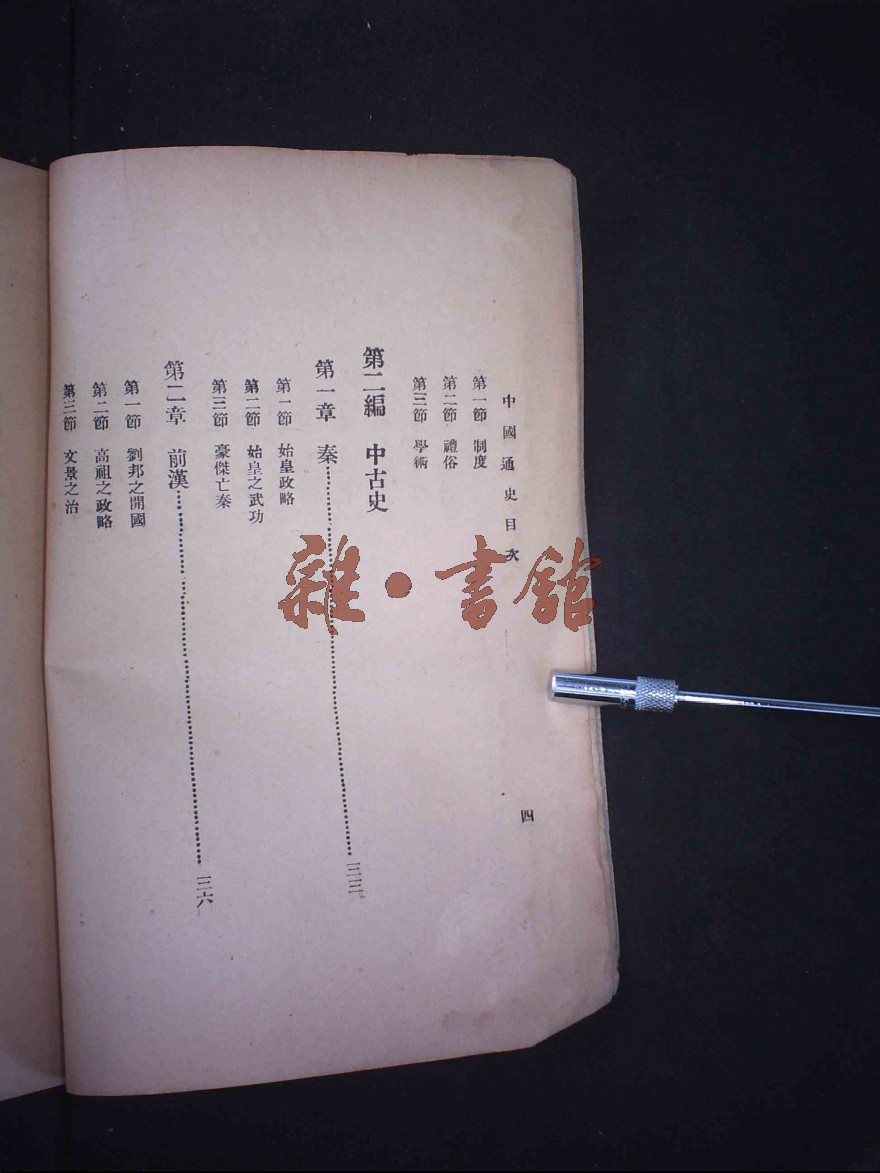 中國通史目次
四
第一節 制度
第二節 禮俗
第三節 學術
第二編 中古史
第一章 秦……一二三
第一節 始皇政略
第二節 始皇之武功
第三節 豪傑亡秦
第二章 前漢……一二六
第一節 劉邦之開國
第二節 高祖之政略
第三節 文景之治
雜·書館